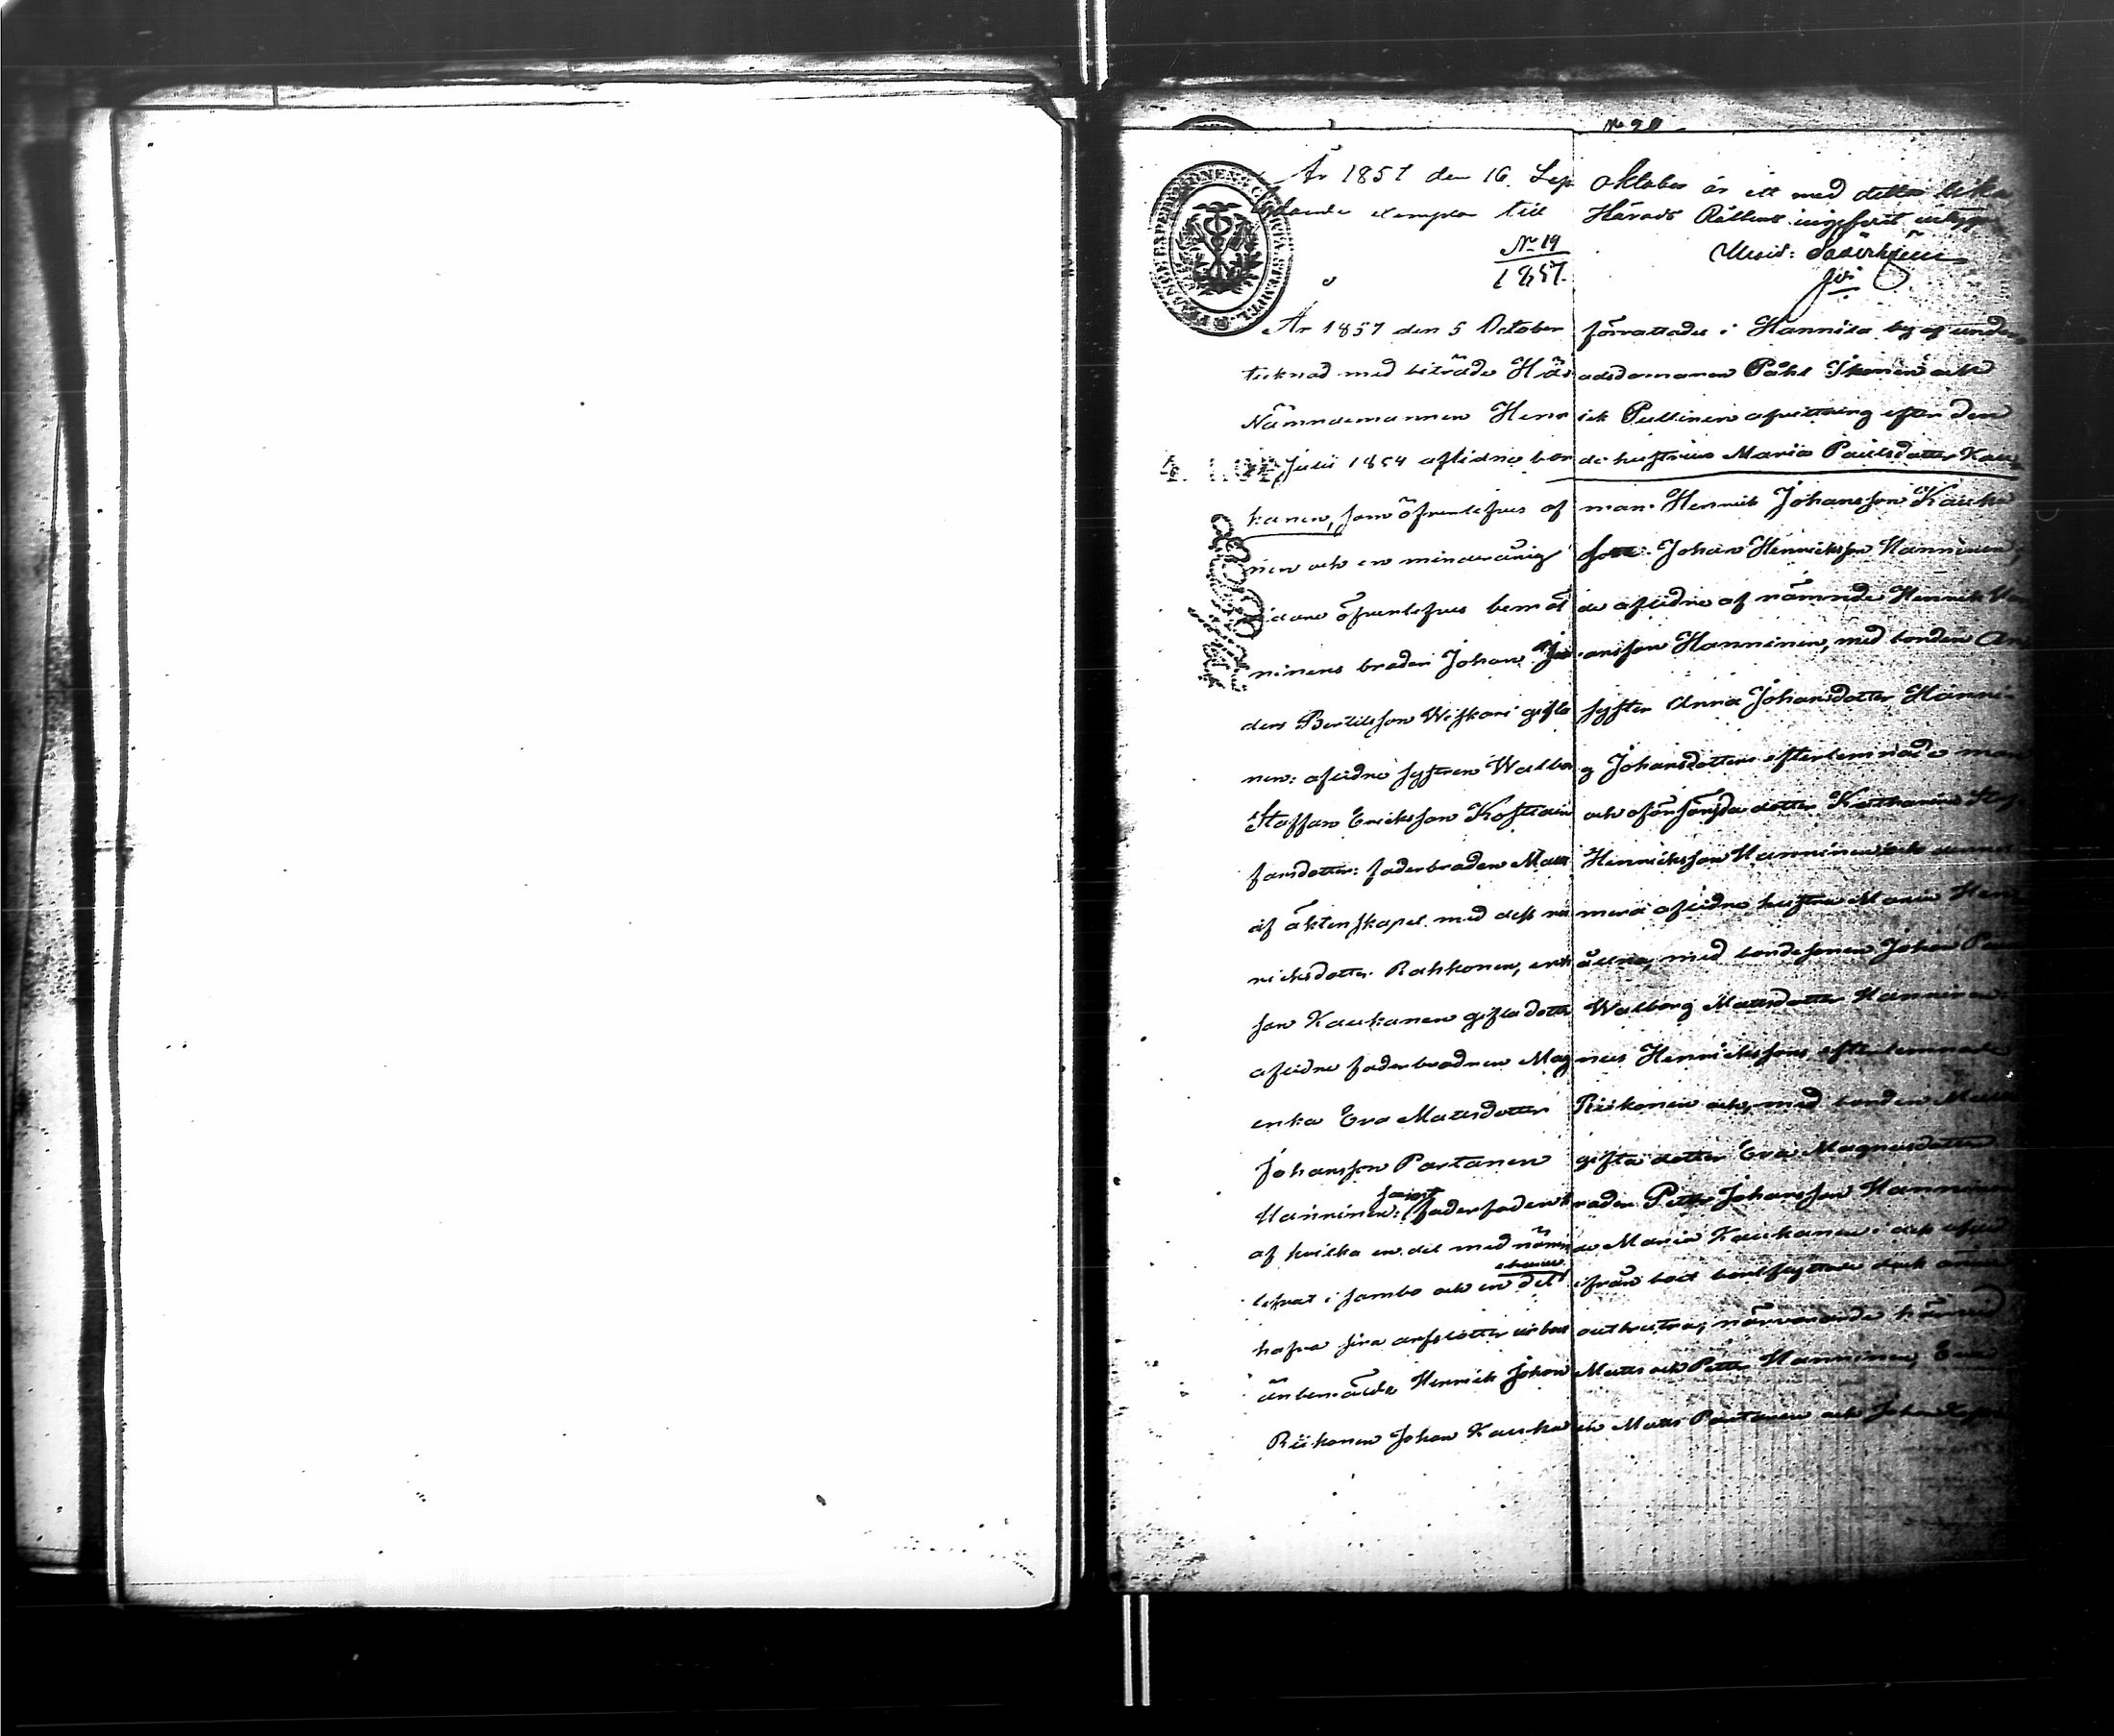 No 20
År 1857 den 16 Sep Oktober är ett med detta lika
lydande exemplar till Härads Rättens ingifvit
No 19
1857.
År 1857 den 5 October förrättades i Hannila by af under
tecknad med biträde Häradsdomaren Påhl Ikonen och
Nämndemannen Henrick Pullinen afvittring efter den
Julii 1854 aflidna bondehustrun Maria Paulsdotter Kau
kanen, som öfverlefves af man Henrick Johansson
nen och en minderårig son Johan Henricksson Hanninen,
öfverlefves bemälde aflidne af nämnde Henrick Han
ninens broder Johan Johansson Hanninen, med bonden An
ders Bertilsson Wiskari gifta syster Anna Johansdotter Hanni
nen: aflidna systren Walborg Johansdotters efterlemnade man
Staffan Ericksson Kostiain och oförsörjda dotter Katharina Staf
fansdotter: faderbrodren Matts Henricksson Hanninen och dennes
af äktenskapet med dess numera aflidna hustru Maria Hen
ricksdotter Rahkonen, erhållna, med bondesonen Johan
son Kaukanen gifta dotter Walborg Mattsdotter Hanninen
aflidne faderbrodren Magnus Henrickssons efterlemnade
enka Eva Mattsdotter Riikonen och, med bonden Matts
Johansson Partanen gifta dotter Eva Magnusdotter
Hanninen: samt faderfaderbroder Petter Johansson Hanninen
af hvilka en del med nämnde Maria Kaukanen i dess
lefvat i sambo och en del ifrån boet bortflyttat dock
hafva sina arfslotter ur boet outbrutna; närvarande härvid
än bemälde Henrick Johan Matts och Petter Hanninen, Eva
Riikonen Johan Kaukanen Matts Partanen och Johan